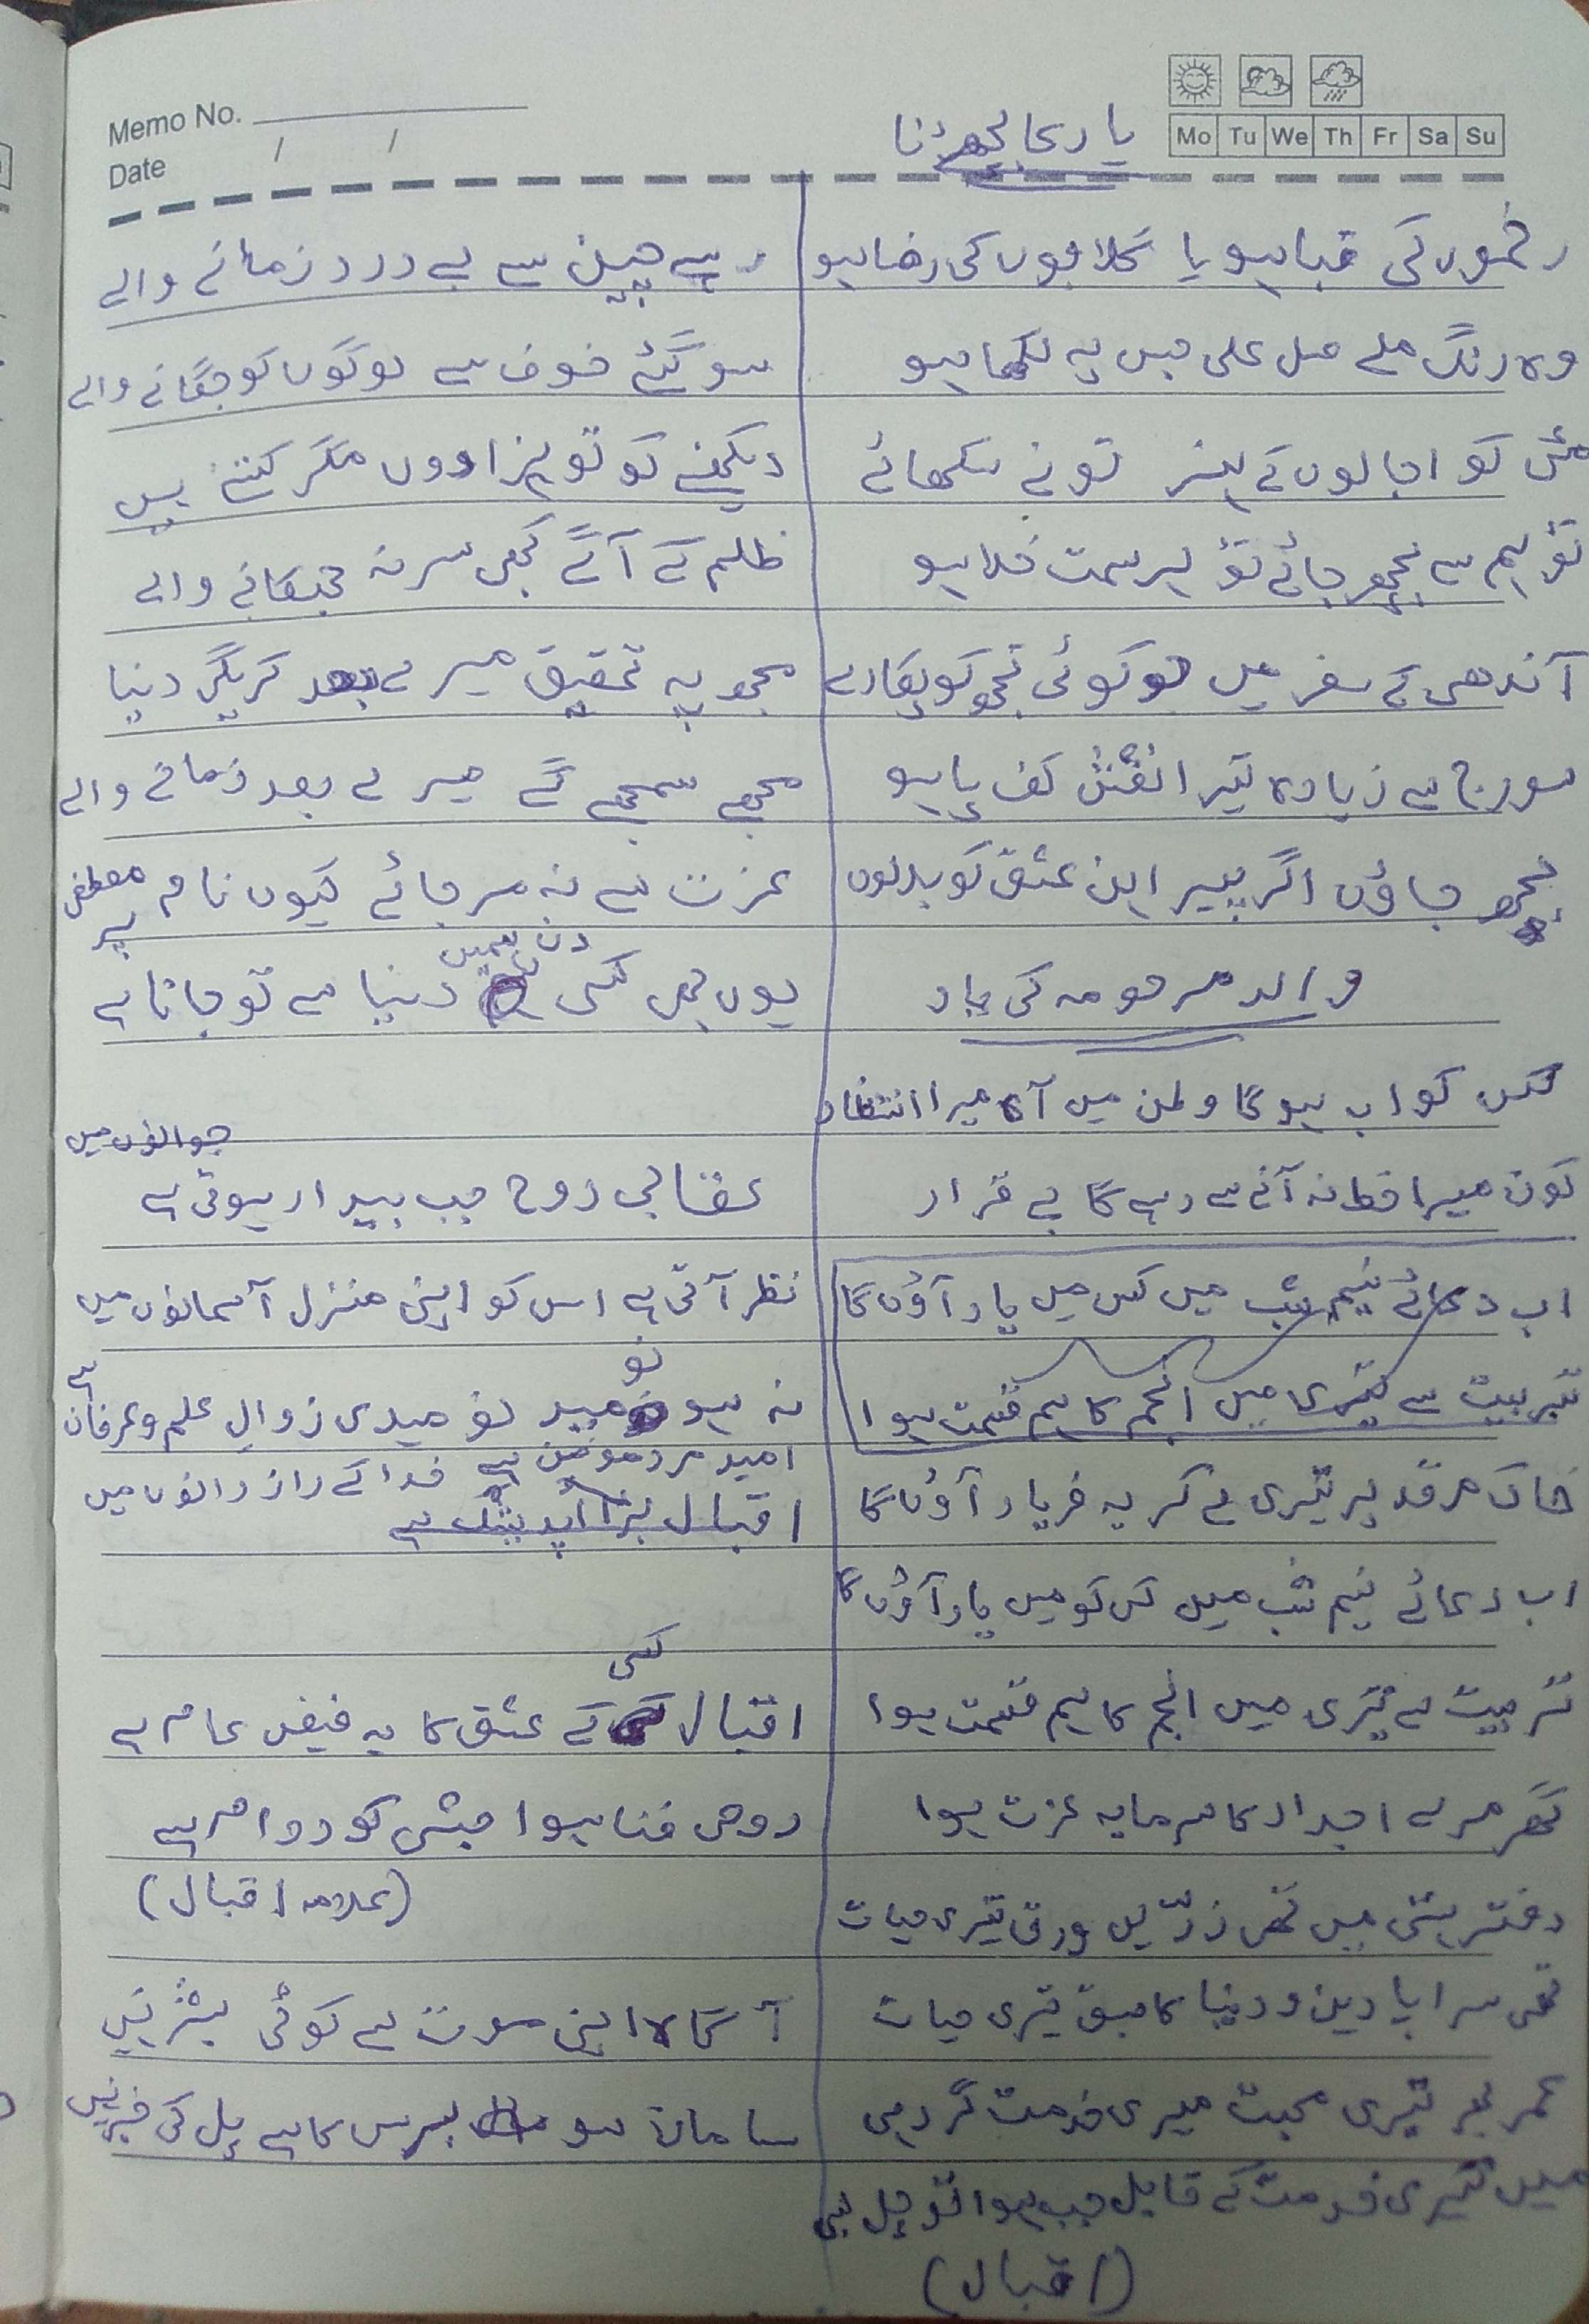 Memo No.
Date / /
Mo Tu We Th Fr Sa Su
یار کا بچھڑنا
زخموں کی قبا ہو یا گلابوں کی رضا ہو
وہ رنگ ملے صل علی جس پہ لکھا ہو
مٹی کو اجالوں کے ہنر تو نے سکھائے
تو ہم سے بچھڑ جائے تو ہر سمت خلا ہو
آندھی کے سفر میں جو کوئی تجھ کو پکارے
سورج سے زیادہ تیرا نقش کف پا ہو
بچھڑ جاؤں اگر پیر اپنے عشق کو بدلوں
والدہ مرحومہ کی یاد
کس کو اب ہوگا وطن میں آہ میرا انتظار
کون میرا خط نہ آنے سے رہے گا بے قرار
اب دعائے نیم شب میں کس میں یاد آؤں گا
تربیت سے تیری میں انجم کا ہم قسمت ہوا
خاک مرقد پر تیری لے کر یہ فریاد آؤں گا
اب دعائے نیم شب میں کس کو میں یاد آؤں گا
تربیت سے تیری میں انجم کا ہم قسمت ہوا
گھر مرے اجداد کا سرمایہ عزت ہوا
دفتر ہستی میں تھی زرّیں ورق تیری حیات
تھی سراپا دین و دنیا کا سبق تیری حیات
عمر بھر تیری محبت میری خدمت گر رہی
میں تیری خدمت کے قابل جب ہوا تو چل بسی
(اقبال)
رہے چین سے بے درد زمانے والے
سو گئے خوف سے لوگوں کو جگانے والے
دیکھنے کو تو ہزاروں مگر کتنے ہیں
ظلم کے آگے کبھی سر نہ جھکانے والے
مجھ پہ تحقیق میرے بعد کریگی دنیا
مجھے سمجھے گے میرے بعد زمانے والے
عزت سے نہ مر جائے کیوں نام مصطفی پر
یوں بھی کسی دن ہمیں دنیا سے تو جانا ہے
عقابی روح جب بیدار ہوتی ہے جوانوں میں
نظر آتی ہے اس کو اپنی منزل آسمانوں میں
نہ ہو نو مید نومیدی زوال علم و عرفان ہے
امید مرد مومن ہے خدا کے راز دانوں میں
اقبال بڑا اپدیشک ہے
اقبال کس کے عشق کا یہ فیض عام ہے
رومی فنا ہوا حبشی کو دوام ہے
(علامہ اقبال)
آگاہ اپنی موت سے کوئی بشر نہیں
سامان سو برس کا ہے پل کی خبر نہیں